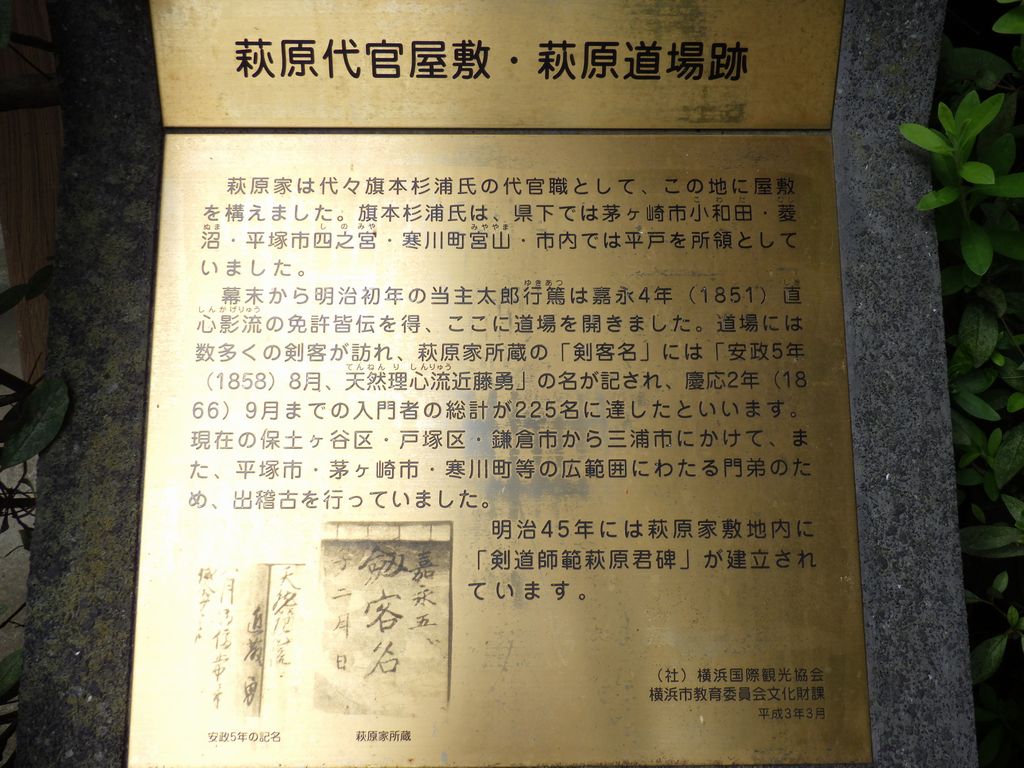 萩原代官屋敷・萩原道場跡
萩原家は代々旗本杉浦氏の代官職として、この地に屋敷
を構えました。旗本杉浦氏は、県下では茅ヶ崎市小和田・菱
沼・平塚市四之宮・寒川町宮山・市内では平戸を所領として
いました。
幕末から明治初年の当主太郎行篤は嘉永4年（1851）直
心影流の免許皆伝を得、ここに道場を開きました。道場には
数多くの剣客が訪れ、萩原家所蔵の「剣客名」には「安政5年
（1858）8月、天然理心流近藤勇」の名が記され、慶応2年（18
66）9月までの入門者の総計が225名に達したといいます。
現在の保土ヶ谷区・戸塚区・鎌倉市から三浦市にかけて、ま
た、平塚市・茅ヶ崎市・寒川町等の広範囲にわたる門弟のた
め、出稽古を行っていました。
明治45年には萩原家敷地内に
「剣道師範萩原君碑」が建立され
ています。
嘉永五
子二月日
剱客名
近藤勇
安政5年の記名
萩原家所蔵
（社）横浜国際観光協会
横浜市教育委員会文化財課
平成3年3月